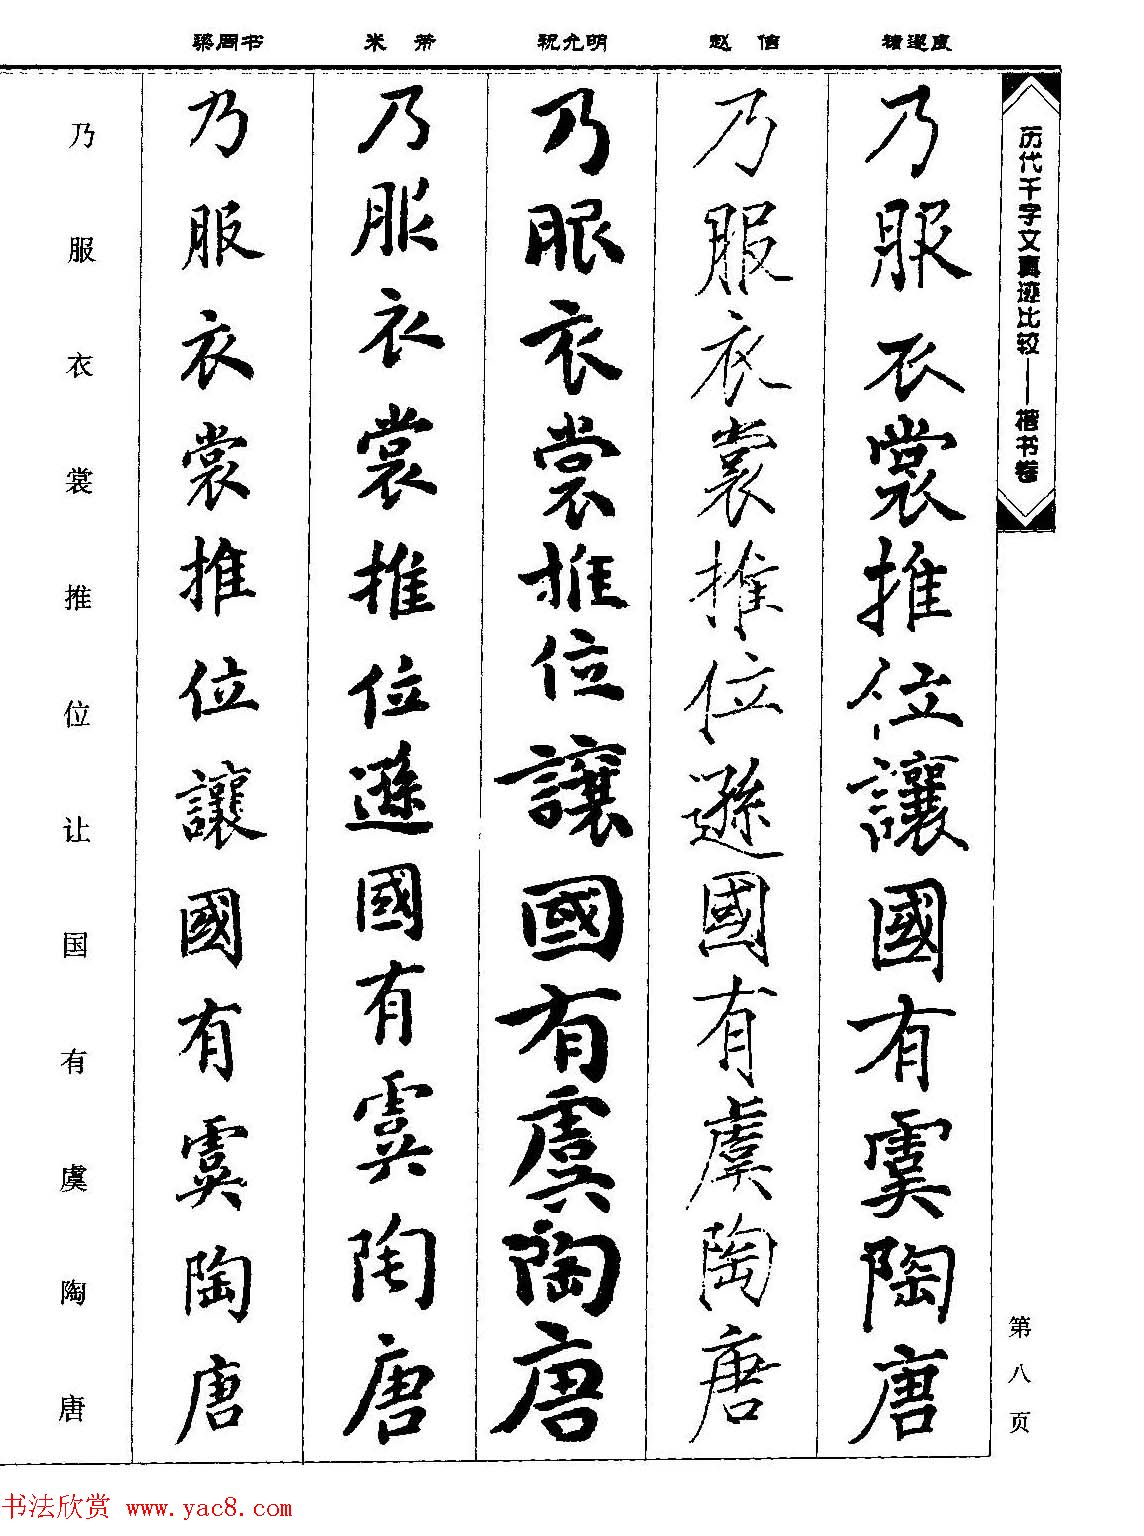 历代千字文真迹比较——楷书卷
第八页
褚遂良
乃服衣裳推位讓國有虞陶唐
赵佶
乃服衣裳推位遜國有虞陶唐
祝允明
乃服衣裳推位讓國有虞陶唐
米芾
乃服衣裳推位遜國有虞陶唐
梁同书
乃服衣裳推位讓國有虞陶唐
乃服衣裳推位让国有虞陶唐
书法欣赏 www.yac8.com